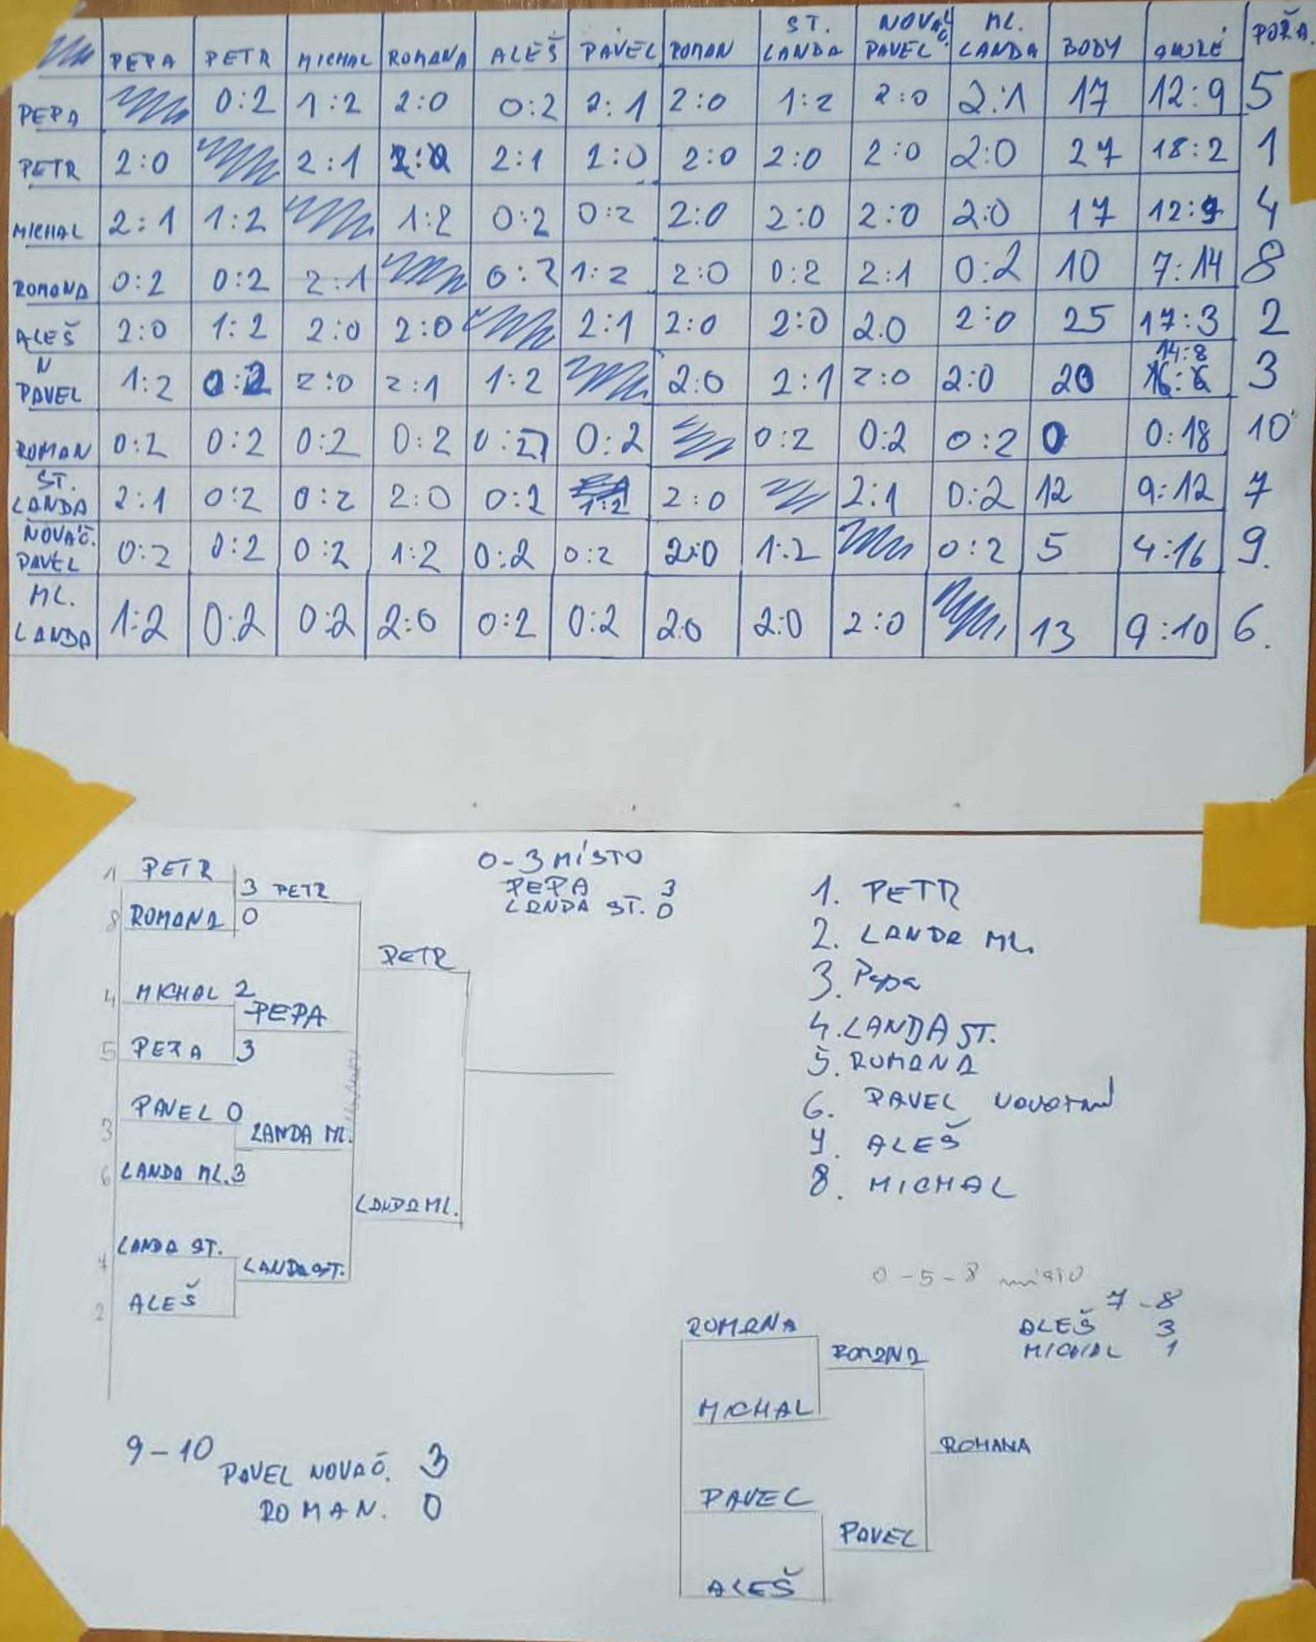 PEPA PETR MICHAL ROMANA ALEŠ PAVEL ROMAN ST. LANDA NOVÁČ. PAVEL ML. LANDA BODY POŘA.
PEPA 0:2 1:2 2:0 0:2 2:1 2:0 1:2 2:0 2:1 17 12:9 5
PETR 2:0 2:1 2:1 2:0 2:0 2:0 2:0 2:0 27 18:2 1
MICHAL 2:1 1:2 1:2 0:2 0:2 2:0 2:0 2:0 2:0 17 12:9 4
ROMANA 0:2 0:2 2:1 0:2 1:2 2:0 0:2 2:1 0:2 10 7:14 8
ALEŠ 2:0 1:2 2:0 2:0 2:1 2:0 2:0 2:0 2:0 25 17:3 2
N PAVEL 1:2 0:2 2:0 2:1 1:2 2:0 2:1 2:0 2:0 20 14:8 3
ROMAN 0:2 0:2 0:2 0:2 0:2 0:2 0:2 0:2 0:2 0 0:18 10
ST. LANDA 2:1 0:2 0:2 2:0 0:2 1:2 2:0 2:1 0:2 12 9:12 7
NOVÁČ. PAVEL 0:2 0:2 0:2 1:2 0:2 0:2 2:0 1:2 0:2 5 4:16 9.
ML. LANDA 1:2 0:2 0:2 2:0 0:2 0:2 2:0 2:0 2:0 13 9:10 6.
0-3 MÍSTO
PEPA 3
LANDA ST. 0
1 PETR 3 PETR
8 ROMANA 0
PETR
4 MICHAL 2
PEPA
5 PEPA 3
3 PAVEL 0
LANDA ML.
6 LANDA ML. 3
LANDA ML.
7 LANDA ST.
LANDA ST.
2 ALEŠ
1. PETR
2. LANDA ML.
3. Pepa
4. LANDA ST.
5. ROMANA
6. PAVEL NOVOTNÝ
7. ALEŠ
8. MICHAL
0-5-8 místo
7-8
ALEŠ 3
MICHAL 1
ROMANA
ROMANA
MICHAL
ROMANA
PAVEL
PAVEL
ALEŠ
9-10
PAVEL NOVÁČ. 3
ROMAN. 0